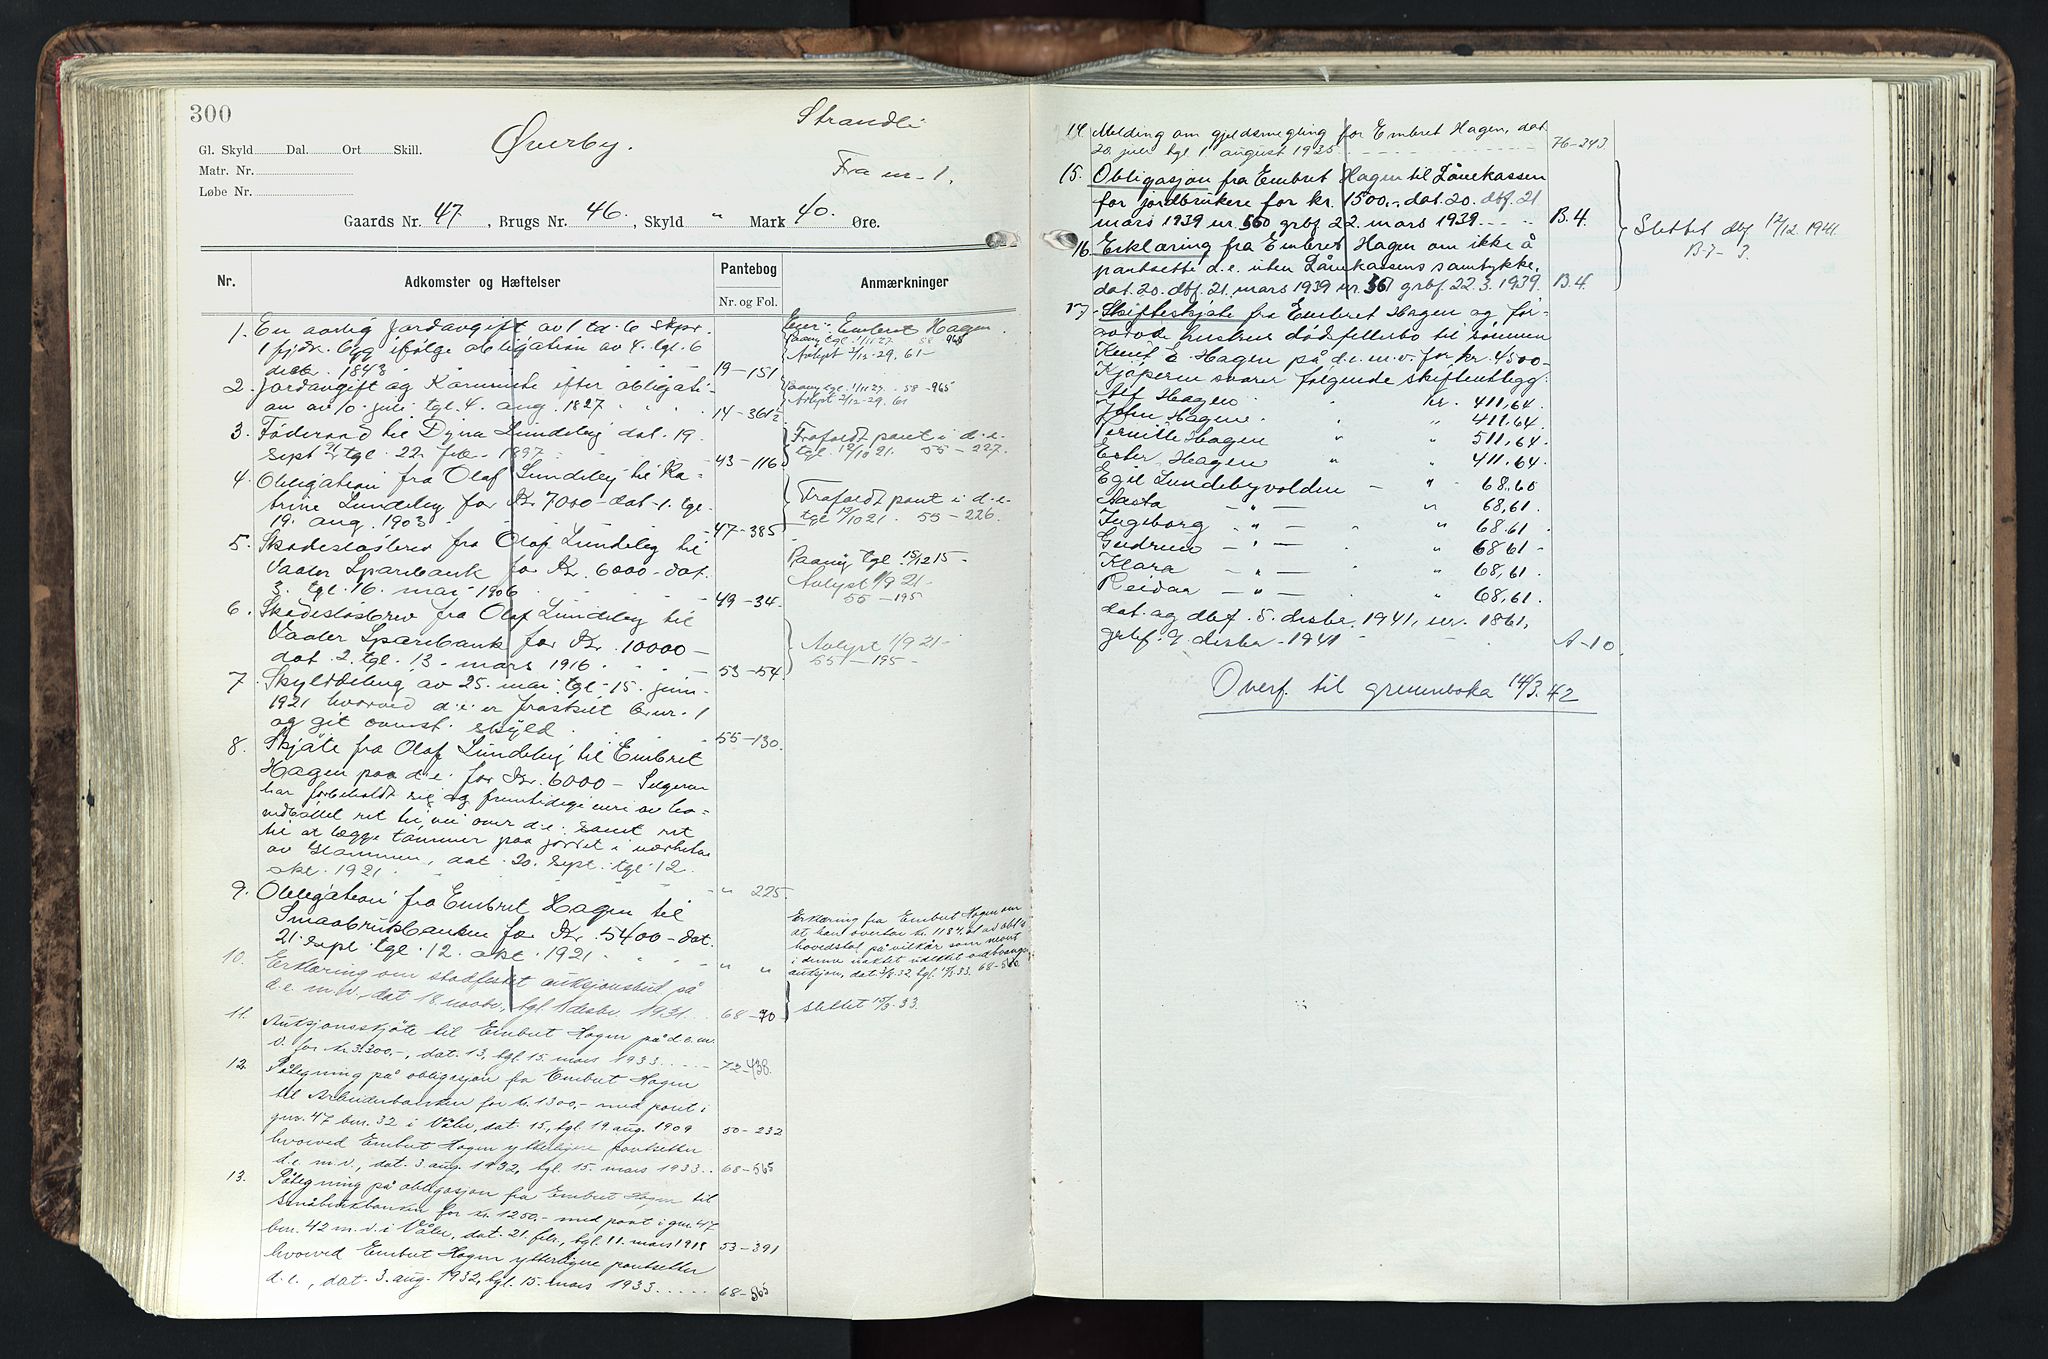 300
Strandli
Øverby.
Gl. Skyld Dal. Ort Skill.
Matr. Nr.
Fra m-1.
Løbe Nr.
Gaards Nr. 47, Brugs Nr. 46., Skyld " Mark 40. Øre.
Nr. Adkomster og Hæftelser Pantebog Anmærkninger
Nr. og Fol.
1. En aarlig jordavgift av 1 td. 6 skpr.
1 fjdk. byg ifølge obligation av 4. tgl. 6
decbr. 1843 19-151
Eier: Embret Hagen.
Paany tgl. 1/11 27. 58 965
Avlyst 2/12-29. 61-
2. Jordavgift og Kornrente efter obligati-
on av 10. juli, tgl. 4. aug. 1827 14-361½
Paany tgl. 1/11 27. 58-965
Avlyst 2/12-29. 61
3. Føderaad til Dina Lundeby dat. 19.
sept tgl. 22. feb. 1897 43-116
Frafaldt pant i d.e.
tgl. 12/10 21. 55-227.
4. Obligation fra Olaf Lundeby til Ka-
trine Lundeby for Kr. 7000- dat. 1. tgl.
19. aug. 1903 47-385
Frafaldt pant i d.e.
tgl 12/10 21. 55-226.
5. Skadesløsbrev fra Olaf Lundeby til
Vaaler Sparebank for Kr. 6000- dat.
3. tgl. 16. mai 1906 49-34
Paany tgl. 15/12 15-
Avlyst 1/9 21-
55-195
6. Skadesløsbrev fra Olaf Lundeby til
Vaaler Sparebank for Kr. 10000-
dat. 2. tgl. 13. mars 1916 53-54
Avlyst 1/9 21-
55-195-
7. Skylddeling av 25. mai tgl. 15. juni
1921 hvorved d.e. er fraskilt b.nr. 1
og git ovenst. skyld. 55-130.
8. Skjøte fra Olaf Lundeby til Embret
Hagen paa d.e. for Kr. 6000- Sælgeren
har forbeholdt sig og fremtidige eiere av ho-
vedbølet ret til vei over d.e. samt ret
til at lægge tømmer paa jordet i nærheten
av Glommen, dat. 20. sept. tgl. 12.
okt. 1921 " 225.
9. Obligation fra Embret Hagen til
Smaabrukbanken for Kr. 5400- dat.
21. sept. tgl. 12. okt. 1921 " "
Erklæring fra Embret Hagen om
at han overtar kr. 1184.01 av obl.s
hovedstol på vilkår som nevnt
i denne utaktet tvangs-
auksjon, dat. 3/8 32, tgl. 15/3 33. 68-560.
10. Erklæring om stadfestet auksjonsbud på
d.e. m.v., dat 18. novbr, tgl. 1 desbr. 1931. 68-70
Slettet 15/3. 33.
11. Auksjonsskjøte til Embret Hagen på d.e. m.
v. for kr. 3300,-, dat. 13, tgl. 15. mars 1933. 72-438.
12. Påtegning på obligasjon fra Embret Hagen
til Arbeiderbanken for kr. 1300,- med pant i
gnr. 47 bnr. 32 i Våler, dat. 15, tgl. 19. aug. 1909 50-232
hvorved Embret Hagen ytterligere pantsetter
d.e. m.v., dat. 3. aug. 1932, tgl. 15. mars 1933. 68-565
13. Påtegning på obligasjon fra Embret Hagen til
Småbrukbanken for kr. 1250,- med pant i gnr. 47
bnr. 42 m.v. i Våler, dat. 21. febr, tgl. 11. mars 1918 53-391
hvorved Embret Hagen ytterligere pantsetter
d.e., dat. 3. aug. 1932, tgl. 15. mars 1933. 68-565
14. Melding om gjeldsmegling for Embret Hagen, dat.
20. juli tgl 1. august 1935 76-243
15. Obligasjon fra Embret Hagen til Lånekassen
for jordbrukere for kr. 1500,- dat. 20. dbf. 21
mars 1939 nr. 560 grbf 22. mars 1939. B.4.
16. Erklæring fra Embret Hagen om ikke å
pantsette d.e. uten Lånekassens samtykke,
dat. 20. dbf. 21. mars 1939 nr. 561 grbf. 22.3.1939. B.4.
Slettet dbf 12/12. 1941.
B-7- 3.
17. Skifteskjøte fra Embret Hagen og før-
avdøde hustrus dødsfellesbo til sønnen
Knut E. Hagen på d.e. m.v. for kr. 4500-
Kjøperen svarer følgende skifteutlegg:
Alf Hagen kr. 411,64.
John Hagen " 411.64.
Pernille Hagen " " 511,64.
Ester Hagen " " 411.64.
Egil Lundebyvolden - " 68.60
Aasta - " - " 68,61.
Ingeborg - " - " 68.61
Gudrun - " - " 68 61-
Klara - " - " 68,61.
Reidar - " - " 68,61.
dat. og dbf. 5. desbr. 1941, nr. 1861,
grbf. 9. desbr. 1941 A-10.
Overf. til grunnboka 14/3.42